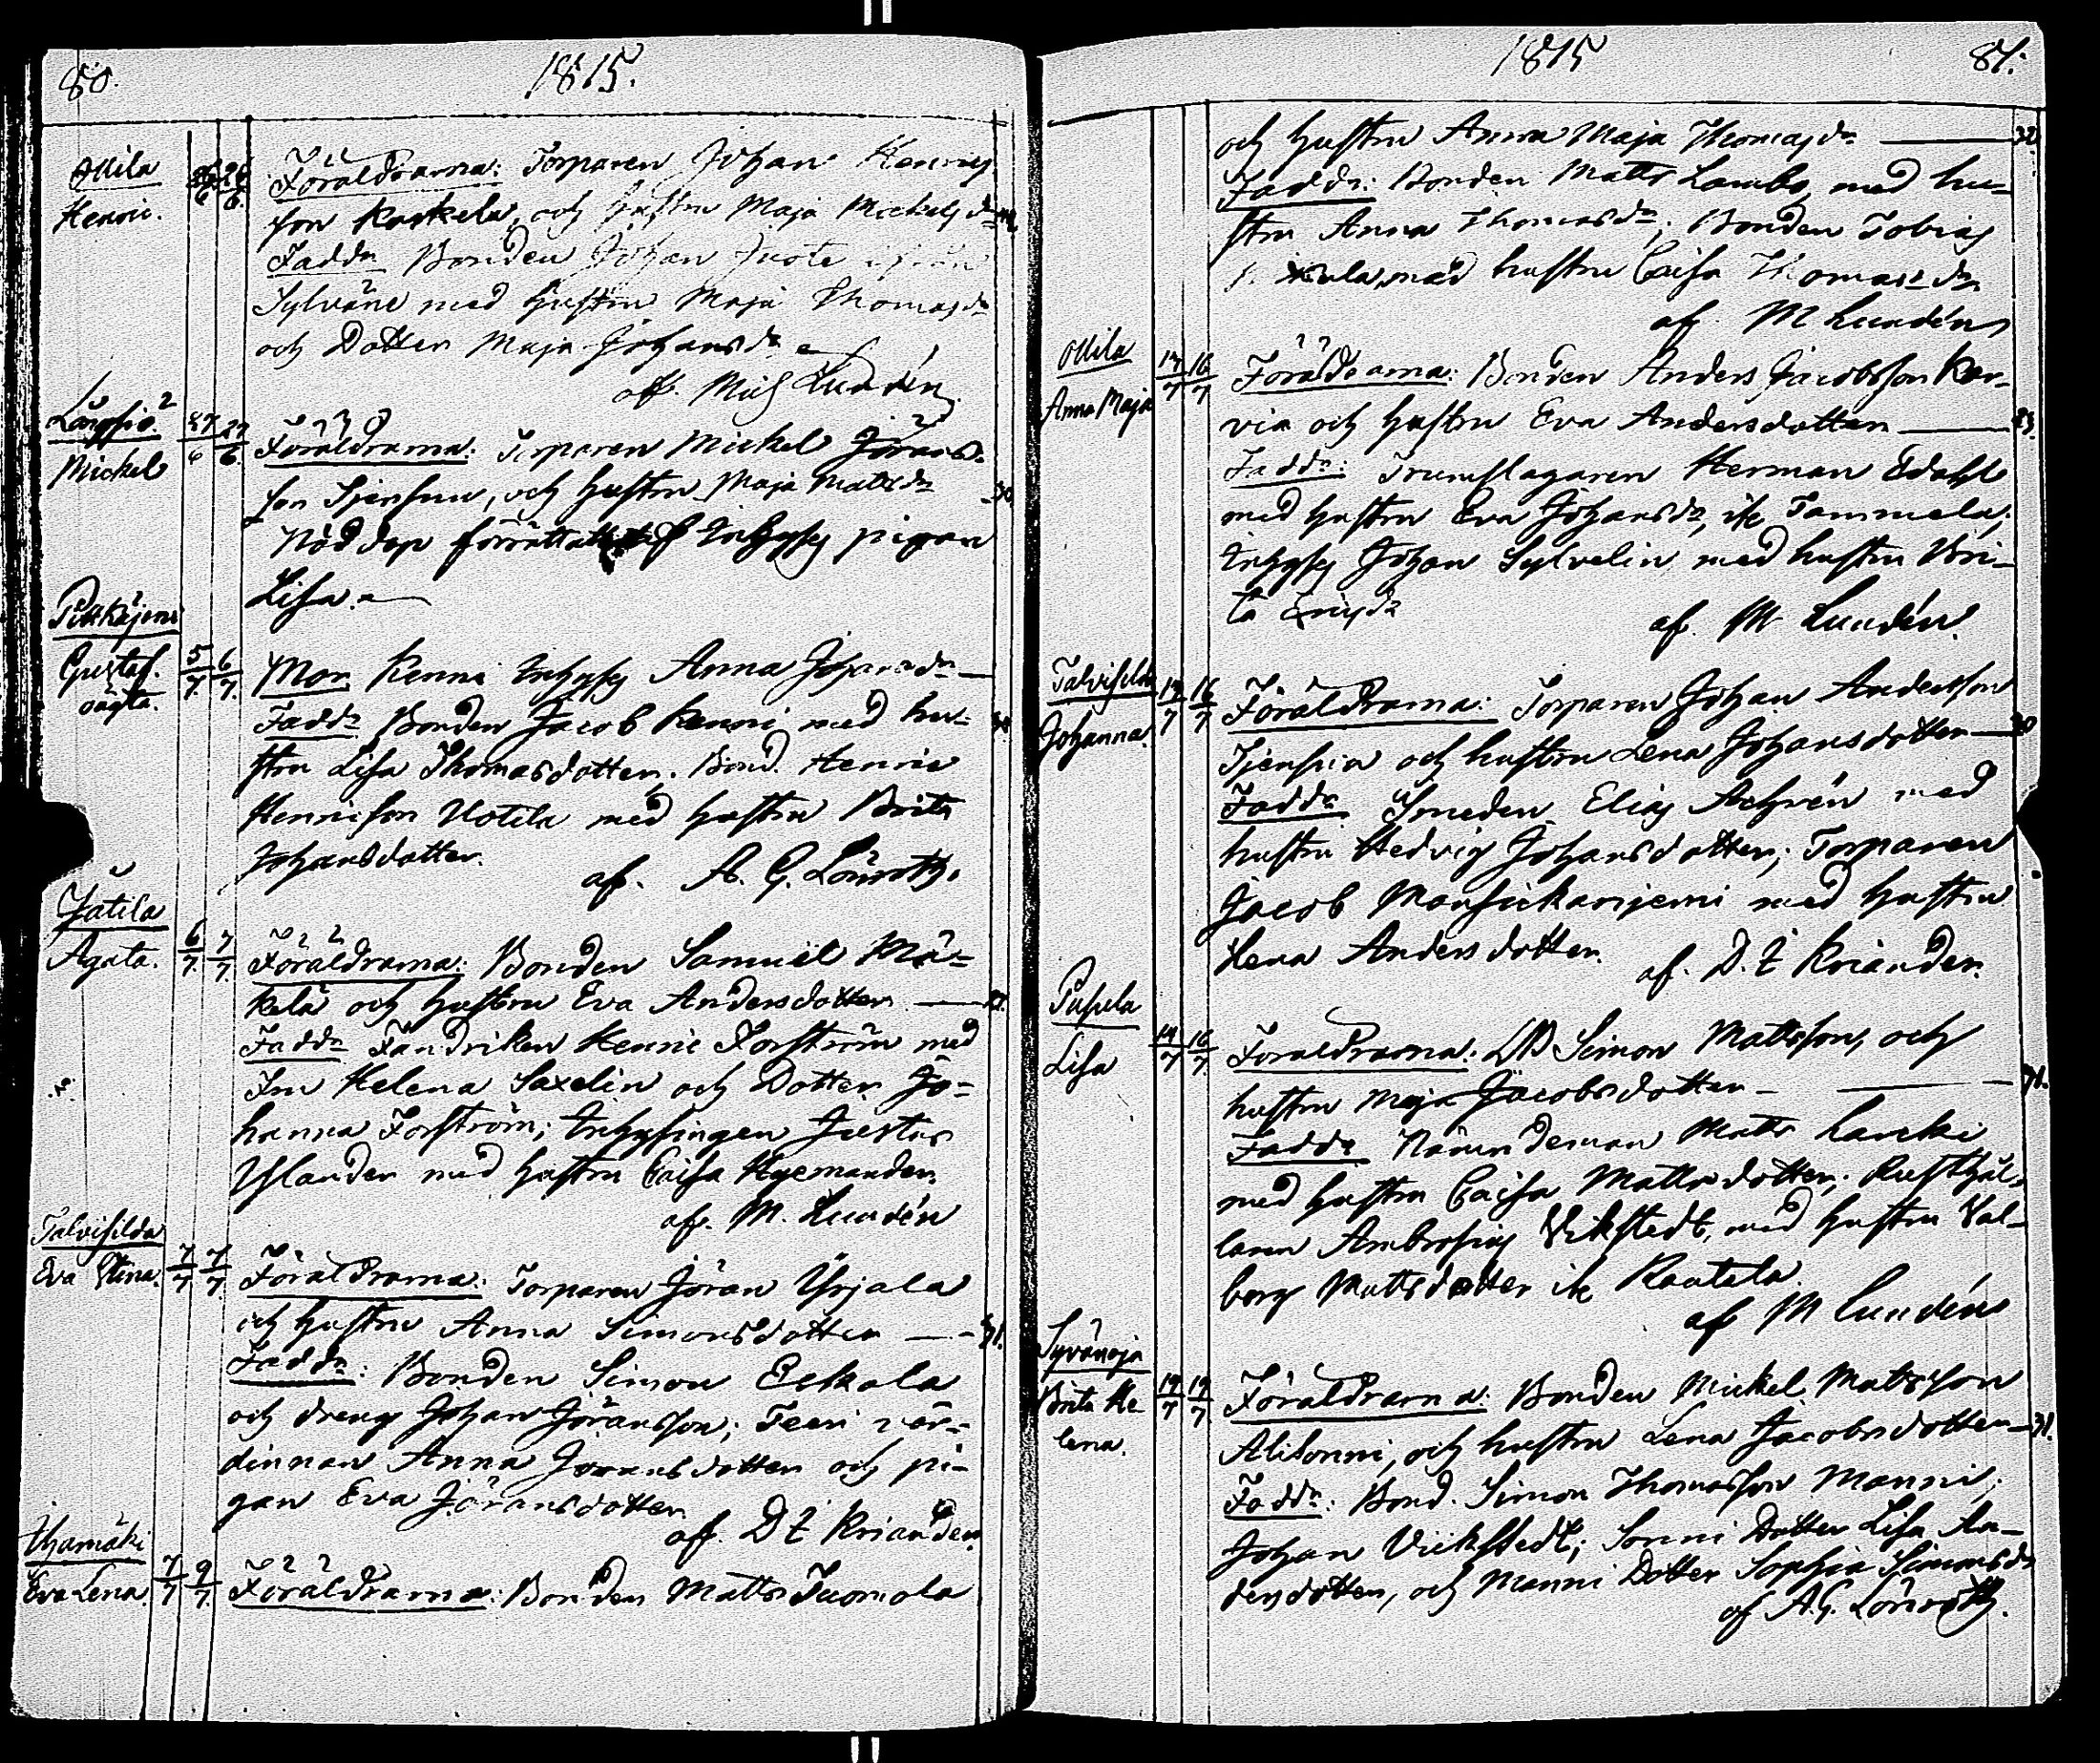 80. 1815.
Ollila
Henric.
26/6 26/6.
Föräldrarna: Torparen Johan Henrics
son Kaskela, och hustru Maja Mickelsdr
Faddr Bonden Johan Juote ifrån
Sylväne med hustru Maja Thomasdr
och Dotter Maja Johansdr
af. Mich Lundén.
Långsjo.
Mickel
27/6 27/6.
Föräldrarna: Torparen Mickel Jörans-
son, och hustru Maja Mattsdr 30.
Nöddop förrättatt af Inhyses pigan
Lisa.
Pitkäjervi
Gustaf.
oägta.
5/7 6/7.
Mor Kenni Inhyses Anna Johansdr
Faddr Bonden Jacob Kenni med hu-
stru Lisa Thomasdotter. Bond. Henric
Henricson Uotila med hustru Brita
Johansdotter.
af. A. G. Lönroth.
Jatila
Agata.
6/7. 7/7.
Föräldrarna: Bonden Samuel Mä-
kelä och hustru Eva Andersdotter
Faddr Fändriken Henric Forström med
Fru Helena Saxelin och Dotter Jo-
hanna Forström; Inhysingen Justus
Ylander med hustru Caisa Hyemander.
af. M. Lundén
Talvisilda
Eva Stina.
7/7 7/7
Föräldrarna: Torparen Jöran Yrjala
och hustru Anna Simonsdotter 31.
Faddr: Bonden Simon Eckola
och dreng Johan Jöransson; Feeri vär-
dinnan Anna Joransdotter och pi-
gan Eva Jöransdotter
af. D. E Kriander.
Ihamäki
Eva Lena.
7/7 9/7.
Föräldrarna: Bonden Matts Tuomola
1815 81.
och hustru Anna Maja Thomasdr 32.
Faddr: Bonden Matts Lambo, med hu-
stru Anna Thomasdr; Bonden Tobias
med hustru Caisa Thomasdr
af. M Lundén
Ollila
Anna Maja
14/7 16/7
Föräldrarna: Bonden Anders Jacobsson Kar-
via och hustru Eva Andersdotter 23.
Faddr: Trumslagaren Herman Edahl
med hustru Eva Johansdr, ifr Tammela;
Inhyses Johan Sylvelin med hustru Bri-
ta Ericsdr
af. M Lundén.
Talvisilda
Johanna.
14/7 16/7
Föräldrarna: Torparen Johan Andersson
och hustru Lena Johansdotter 20
Faddr Smeden Elias Achrén med
hustru Hedvig Johansdotter; Torparen
Jacob Mansickanjemi med hustru
Lena Andersdotter.
af. D. E Kriander.
Pusula
Lisa
14/7 16/7.
Föräldrarna: LB Simon Mattsson, och
hustru Maja Jacobsdotter 31.
Faddr Nämndeman Matts Larcki
med hustru Caisa Mattsdotter; Rusthål-
laren Ambrosius Vikstedt, med hustru Val-
borg Mattsdotter ifr Rautela.
af M Lundén
Syvänoja
Brita He-
lena.
19/7 19/7
Föräldrarna: Bonden Mickel Mattsson
Alisonni, och hustru Lena Jacobsdotter 31.
Faddr: Bond. Simon Thomasson Manni;
Johan Vickstedt; Sonni Dotter Lisa An-
dersdotter, och Manni Dotter Sophia Simonsdr
af A. G. Lönroth.